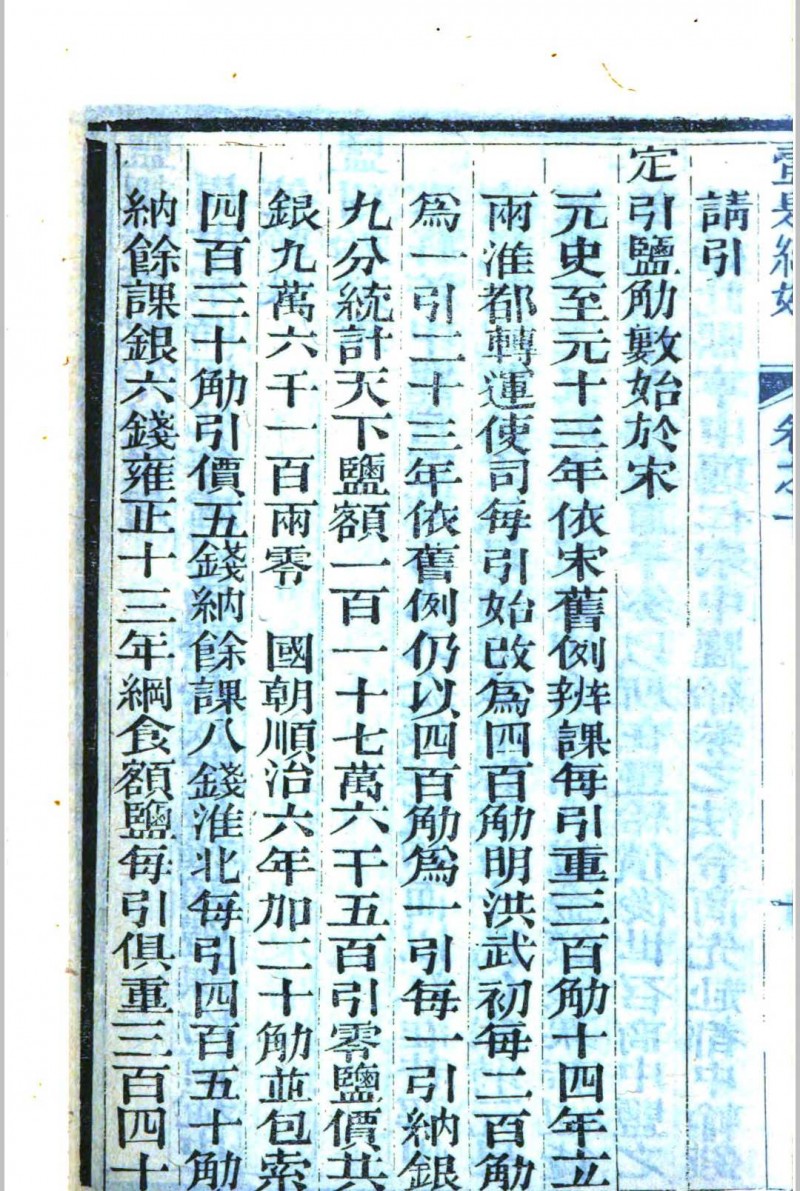 壹是紀始
卷之一
十
請引
定引鹽觔數始於宋
元史至元十三年依宋舊例辨課每引重三百觔十四年立
兩淮都轉運使司每引始改爲四百觔明洪武初每二百觔
爲一引二十三年依舊例仍以四百觔爲一引每一引納銀
九分統計天下鹽額一百一十七萬六千五百引零鹽價共
銀九萬六千一百兩零　國朝順治六年加二十觔並包索
四百三十觔引價五錢納餘課八錢淮北每引四百五十觔
納餘課銀六錢雍正十三年綱食額鹽每引俱重三百四十